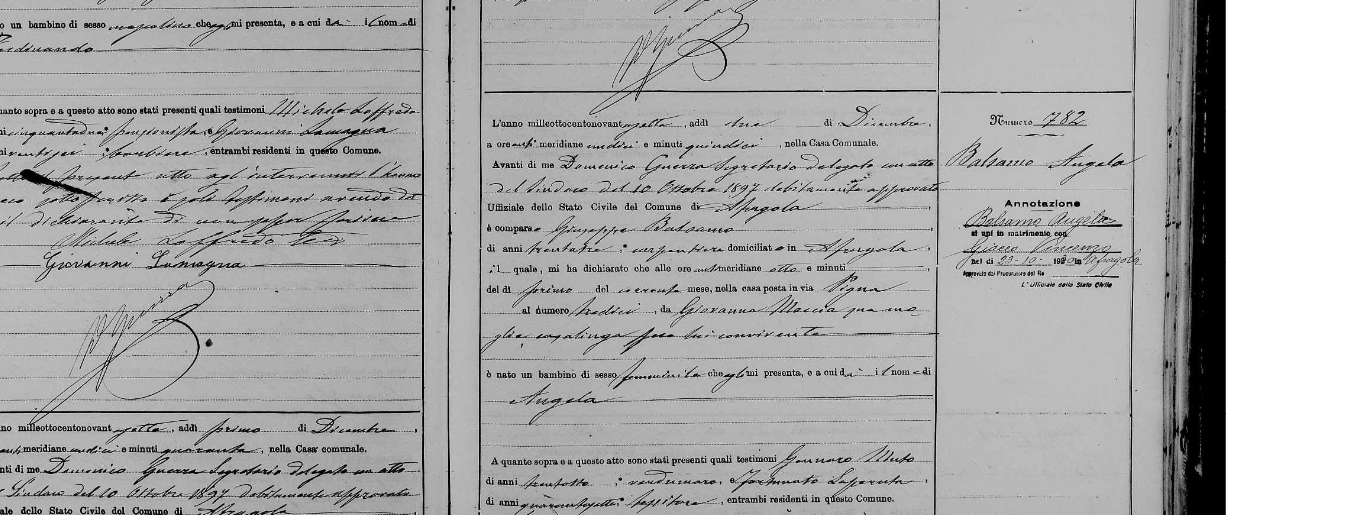 o un bambino di sesso mascolino che egli mi presenta, e a cui dà il nome di
Ferdinando
uanto sopra e a questo atto sono stati presenti quali testimoni Michele Loffredo
ni cinquantadue pensionista, Giovanni Lamagna
ni ventisei barbiere, entrambi residenti in questo Comune.
presente atto agli intervenuti
Michele Loffredo
Giovanni Lamagna
nno milleottocentonovantasette, addì primo di Dicembre,
antimeridiane undici e minuti quaranta, nella Casa comunale.
nti di me Domenico Guerra Segretario delegato con atto
Sindaco del 10 Ottobre 1897 debitamente approvato
ale dello Stato Civile del Comune di Afragola
L'anno milleottocentonovantasette, addì tre di Dicembre,
a ore anti meridiane undici e minuti quindici, nella Casa Comunale.
Avanti di me Domenico Guerra Segretario delegato con atto
del Sindaco del 10 Ottobre 1897 debitamente approvato
Uffiziale dello Stato Civile del Comune di Afragola
è comparso Giuseppe Balsamo
di anni trentatre, carpentiere domiciliato in Afragola,
il quale, mi ha dichiarato che alle ore antimeridiane otto e minuti
del dì primo del corrente mese, nella casa posta in via Pigna
al numero tredici, da Giovanna Moccia sua mo
glie casalinga seco lui convivente
è nato un bambino di sesso femminile che egli mi presenta, e a cui dà il nome di
Angela
A quanto sopra e a questo atto sono stati presenti quali testimoni Gennaro Muto
di anni trentotto, verdumaro, Fortunato Laperuta,
di anni quarantasette, sartore, entrambi residenti in questo Comune.
Numero 782
Balsamo Angela
Annotazione
Balsamo Angela
si unì in matrimonio con
Giacco Vincenzo
nel dì 23-10-1920 in Afragola
Approvato dal Procuratore del Re
L'Uffiziale dello Stato Civile